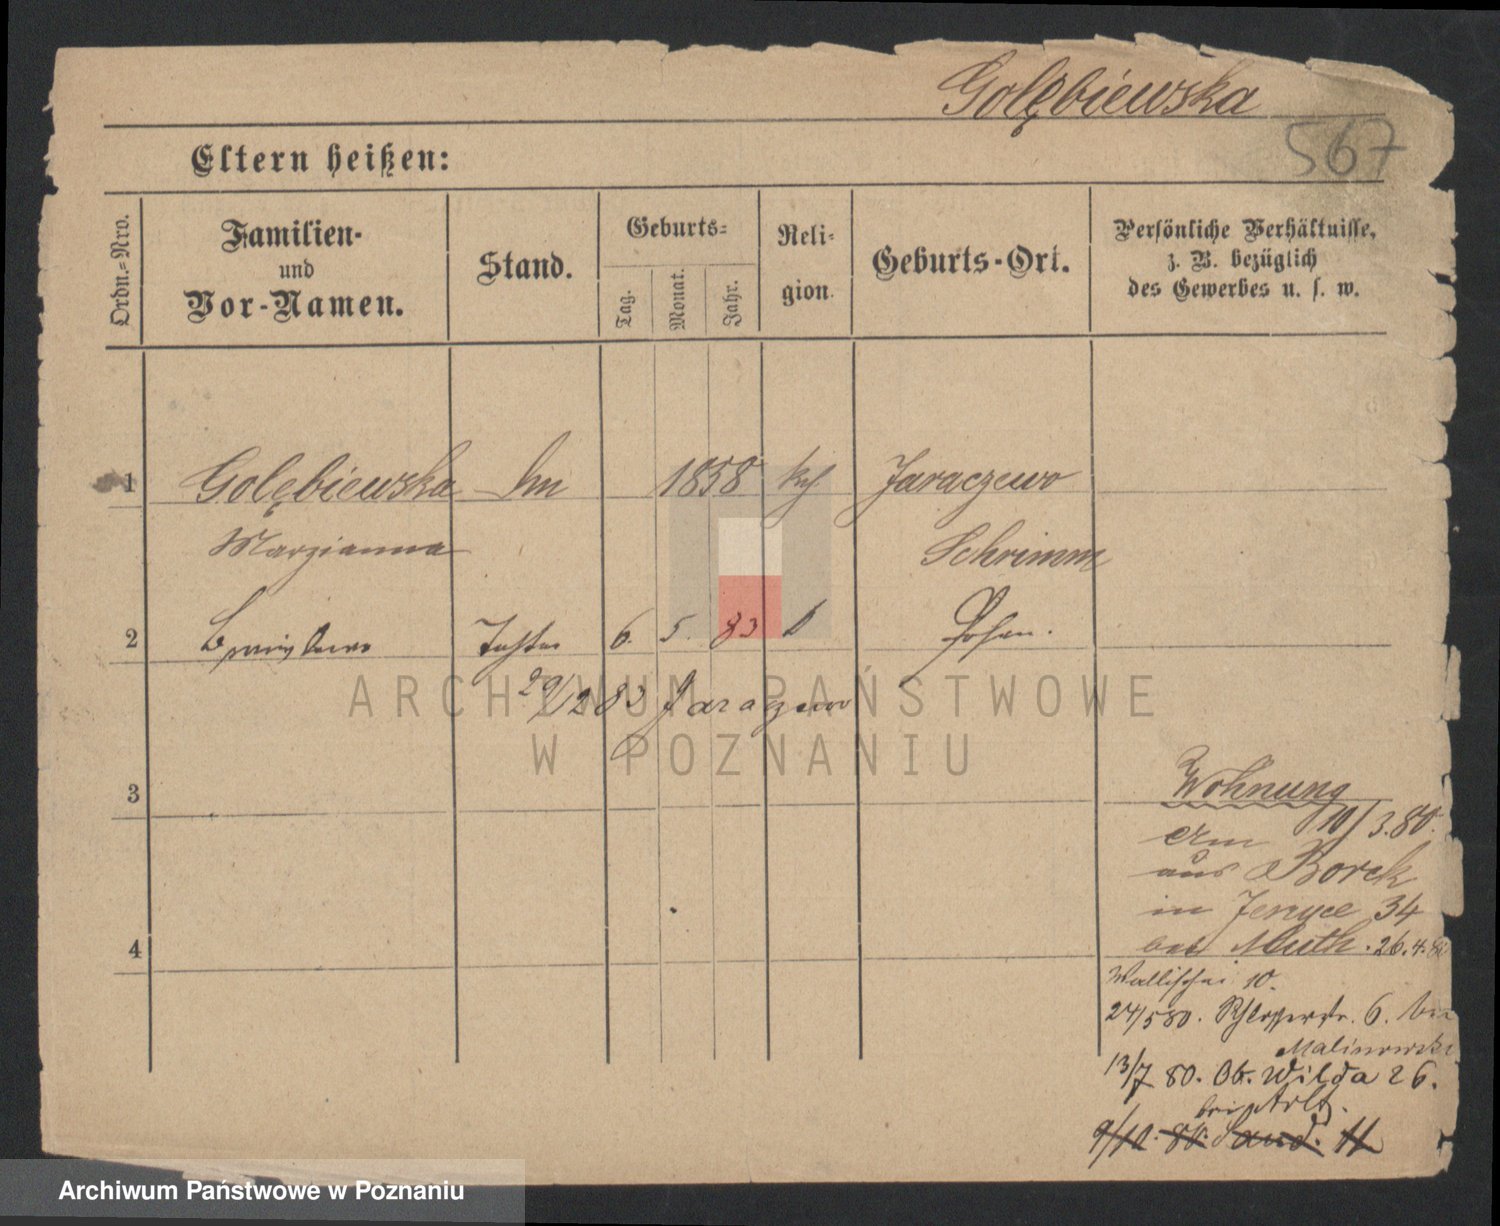 Golębiewska
567
Eltern heißen:
Ordn.-Nro.
Familien-
und
Vor-Namen.
Stand.
Geburts-
Tag.
Monat.
Jahr.
Reli-
gion.
Geburts-Ort.
Persönliche Verhältnisse,
z. B. bezüglich
des Gewerbes u. s. w.
1 Golębiewska 1858 Jaraczewo
Marzianna Schrimm
2 Tochter 6. 5. 83 Posen.
29/2 83 Jaraczewo
3
4
Wohnung
10/3.80.
aus Borck
in Jersyce 34
bei Muth. 26.4.80
Wallischei 10.
24/5 80. Schlosserstr. 6. bei
Malinowski
13/7 80. Ob. Wilda 26.
bei Arlt.
9/10. 80. Sand. 11
ARCHIWUM PAŃSTWOWE
W POZNANIU
Archiwum Państwowe w Poznaniu